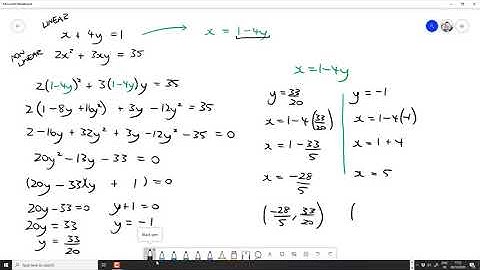 Microsoft Whiteboard
LINEAR
x + 4y = 1
x = 1-4y
NON LINEAR
2x² + 3xy = 35
2(1-4y)² + 3(1-4y)y = 35
2(1-8y+16y²) + 3y-12y² = 35
2-16y+32y²+3y-12y²-35=0
20y²-13y-33=0
(20y-33)(y + 1)=0
20y-33=0 y+1=0
20y=33 y=-1
y=33/20
x=1-4y
y=33/20 y=-1
x=1-4(33/20) x=1-4(-1)
x=1-33/5 x=1+4
x=-28/5 x=5
(-28/5, 33/20) (
Black pen